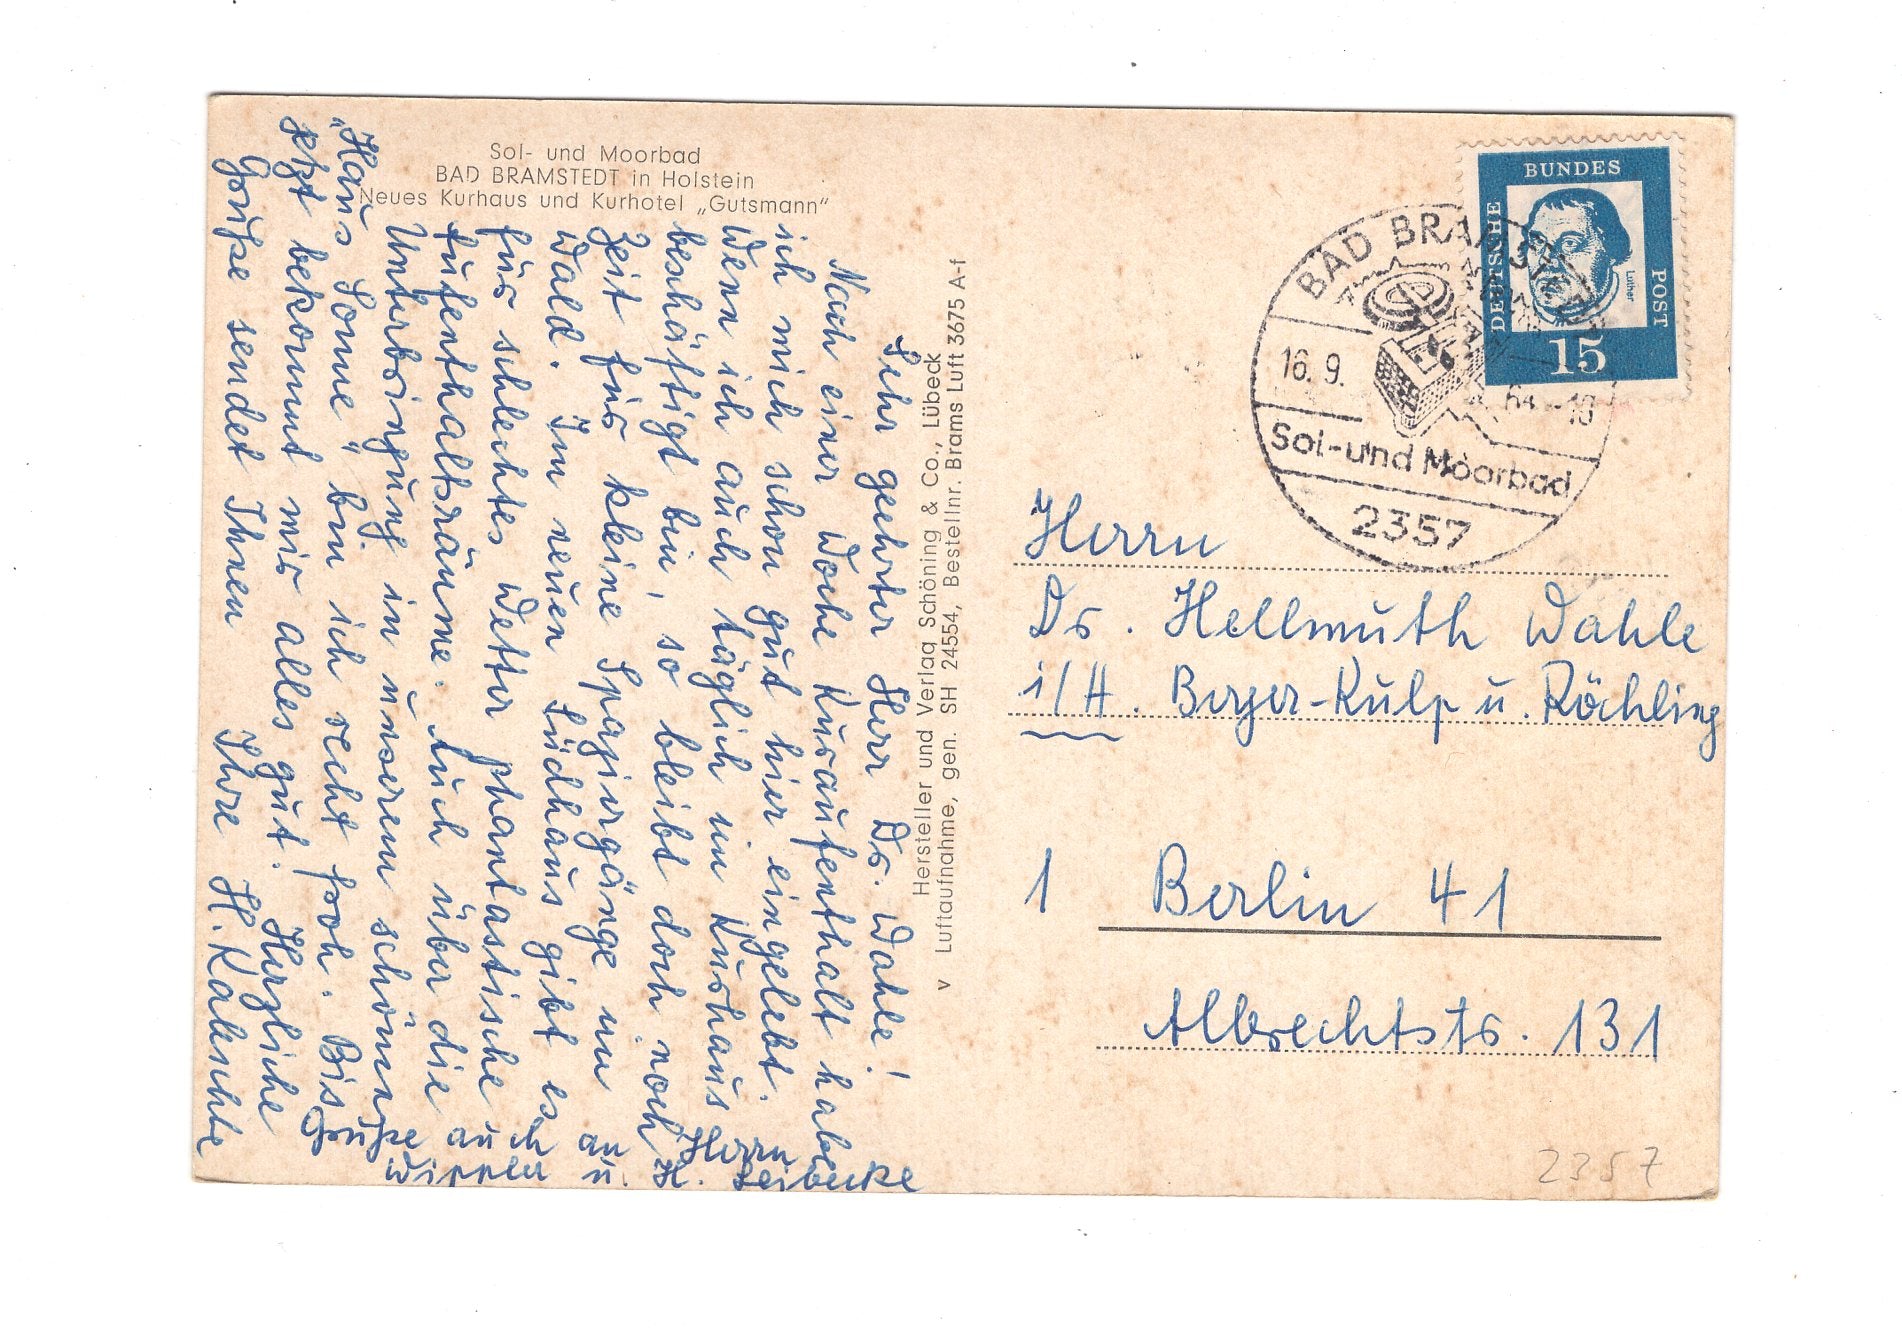 Sol- und Moorbad
BAD BRAMSTEDT in Holstein
Neues Kurhaus und Kurhotel „Gutsmann"
Sehr geehrter Herr Dr. Wahle!
Nach einer Woche Kuraufenthalt habe
ich mich schon gut hier eingelebt.
Wenn ich auch täglich im Kurhaus
beschäftigt bin, so bleibt doch noch
Zeit für kleine Spaziergänge im
Wald. Im neuen Südhaus gibt es
für schlechtes Wetter phantastische
Aufenthaltsräume. Auch über die
Unterbringung in unserem schönen
„Haus Sonne" bin ich recht froh. Bis
jetzt bekommt mir alles gut. Herzliche
Grüße sendet Ihnen Ihre H.
Grüße auch an Herrn
u. H.
Hersteller und Verlag Schöning & Co., Lübeck
v Luftaufnahme, gen. SH 24554, Bestellnr. Brams Luft 3675 A-f
DEUTSCHE
BUNDES
POST
Luther
15
BAD BRAMSTEDT
16. 9. 64 -18
Sol-und Moorbad
2357
Herrn
Dr. Hellmuth Wahle
i/H. Berger-Kulp u. Röchling
1 Berlin 41
Albrechtstr. 131
2357